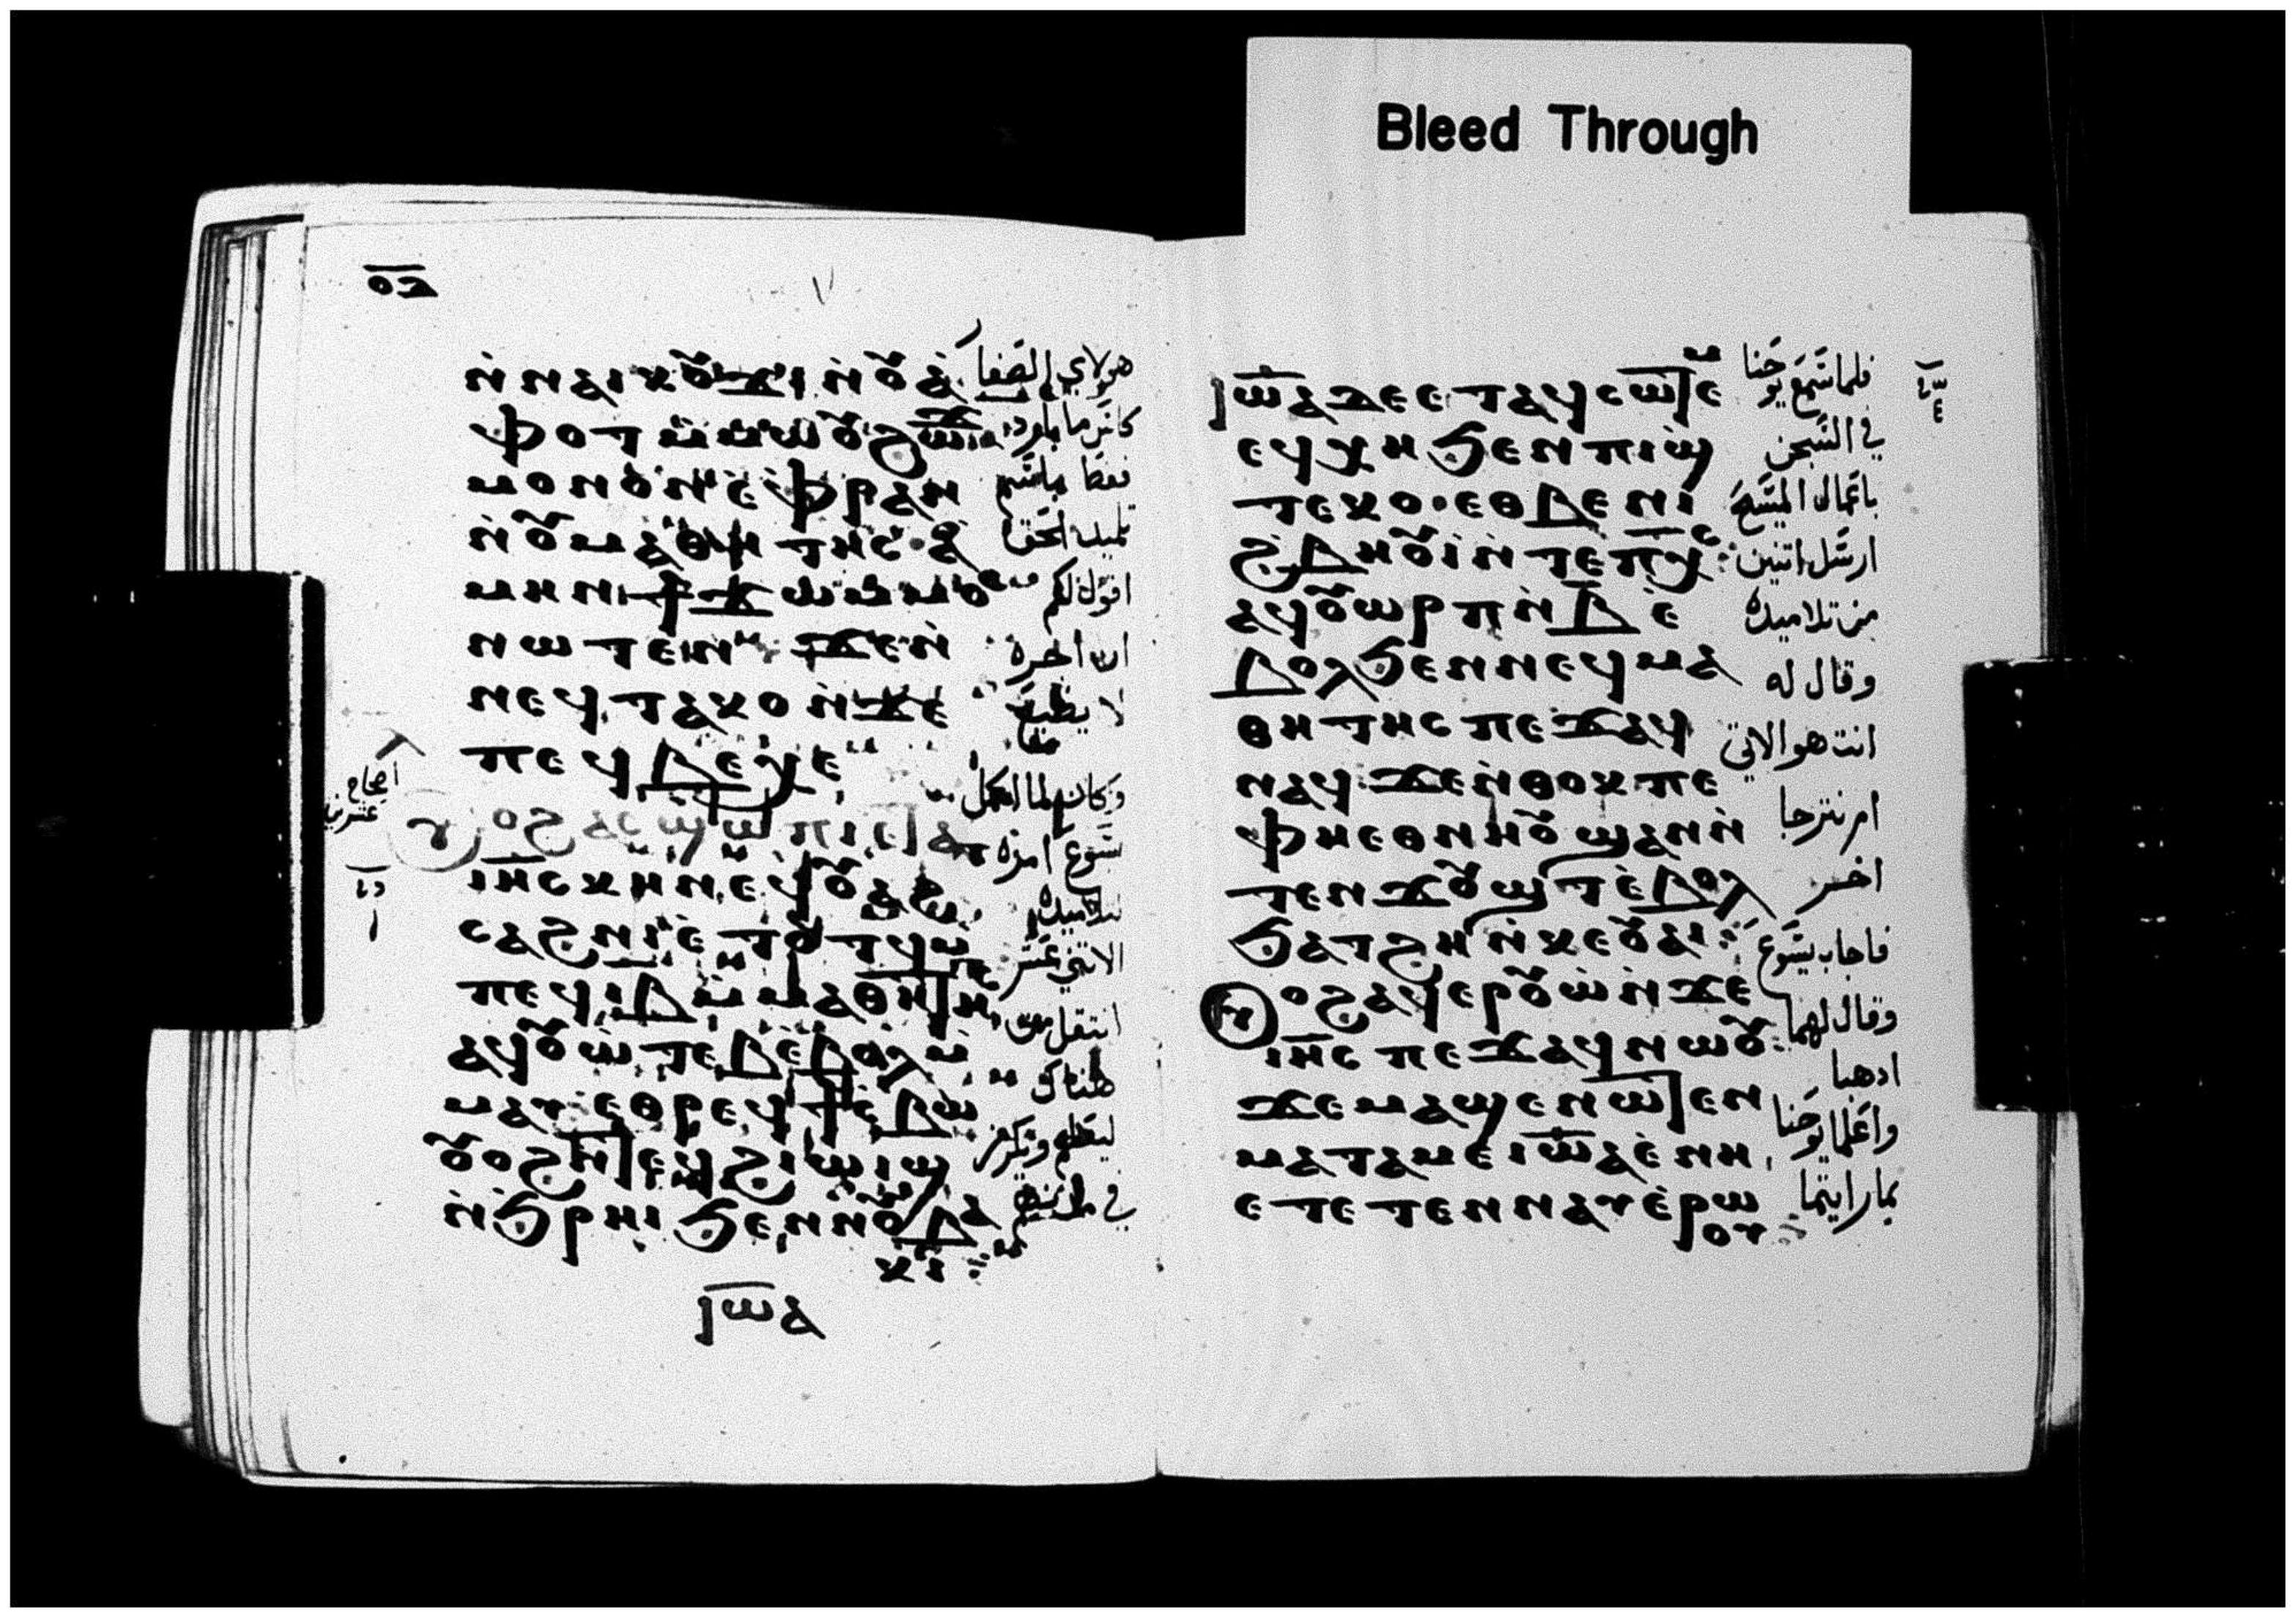 Bleed Through
ⲟ̅ⲃ̅
ⲛ̀ⲛⲁⲓⲕⲟⲩϫⲓ ⲛ̀ⲟⲩⲁ̀
ⲫⲟⲧ ⲙ̀ⲙⲱⲟⲩ ϩⲱϫ
ⲙⲟⲛⲟⲛ ⲉ̀ⲫⲣⲁⲛ
ⲛ̀ⲟⲩⲙⲁⲑⲏⲧⲏⲥ · ⲁ̀
ⲙⲏⲛ ϯϫⲱ ⲙ̀ⲙⲟⲥ
ⲛⲱⲧⲉⲛ ϫⲉⲛ̀
ⲛⲉϥⲧⲁⲕⲟ ⲛ̀ϫⲉ
ⲡⲉϥⲃⲉⲭⲉ
ⲟϩ ⲁⲥϣⲱⲡⲓ ⲉⲧⲁ
ⲓⲏ̅ⲥ ⲕⲏⲛ ⲉϥⲟⲩⲁϩ
ⲥⲁϩⲛⲓ ⲉ̀ⲧⲟⲩⲧϥ ⲙ̀
ⲡⲉϥⲓ̅ⲃ̅ ⲙ̀ⲙⲁⲑⲏⲧⲏⲥ
ⲁϥⲟⲩⲱ̀ⲧⲉⲃ ⲉ̀ⲃⲟⲗ ⲙ̀
ⲙⲁⲩ ⲉⲑⲣⲉϥϯⲥⲃⲱ
ⲟⲩⲟϩ ⲛ̀ⲧⲉϥϩⲓⲱⲓϣ
ⲛ̀ϧⲣⲏⲓ ϧⲉⲛ ⲛⲟⲩⲃⲁ
ⲕⲓ
ⲓⲱ̅ⲁ
هولاي الصغار
تلميد الحق
اقول لكم
ان اجره
لا يضيع
وكان لما اكمل
يسوع امره
تلاميده
الاتني عشر
انتقل من
هناك
ليعلم ويكرز
في مدنهم
ⲓⲱ̅ⲁ ⲇⲉ ⲉⲧⲁϥⲥⲱⲧⲉⲙ
ⲉϥⲭⲏ ϧⲉⲛ ⲡⲓϣ
ⲧⲉⲕⲟ · ⲉⲑⲃⲉ ⲛⲓ
ϩⲃⲏⲟⲩⲓ̀ ⲛ̀ⲧⲉ ⲡⲭ̅ⲥ
ⲁϥⲟⲩⲱⲣⲡ ⲛ̀ⲃ̅ ⲉ̀
ⲃⲟⲗ ϧⲉⲛ ⲛⲉϥⲙⲁ
ⲑⲏⲧⲏⲥ ⲡⲉϫⲁϥ
ⲛⲁϥ ϫⲉ ⲛ̀ⲑⲟⲕ ⲡⲉ
ⲫⲏⲉⲑⲛⲏⲟⲩ ϣⲁⲛ ⲛ̀
ⲧⲉⲛϫⲟⲩϣⲧ ⲉ̀ⲃⲟⲗ
ϧⲁⲧϩⲏ ⲛ̀ⲕⲉⲟⲩⲁⲓ
ⲟϩ ⲁϥⲉⲣⲟⲩⲱ̀ ⲛ̀ϫⲉ
ⲓⲏ̅ⲥ ⲡⲉϫⲁϥ ⲛⲱⲟⲩ
ϫⲉ ⲙⲁϣⲉⲛⲱⲧⲉⲛ
ⲙⲁⲧⲁⲙⲉ ⲓⲱ̅ⲁ ⲉ̀ⲛⲏ
ⲉⲧⲉⲧⲉⲛⲛⲁⲩ ⲉ̀ⲣⲱ
ⲟⲩ
فلما سمع يوحنا
في السجن
باعمال المسيح
ارسل اتنين
من تلاميده
وقال له
انت هو الاتي
ام نترجا
اخر
فاجاب يسوع
وقال لهما
ادهبا
واعلما يوحنا
بما رايتما